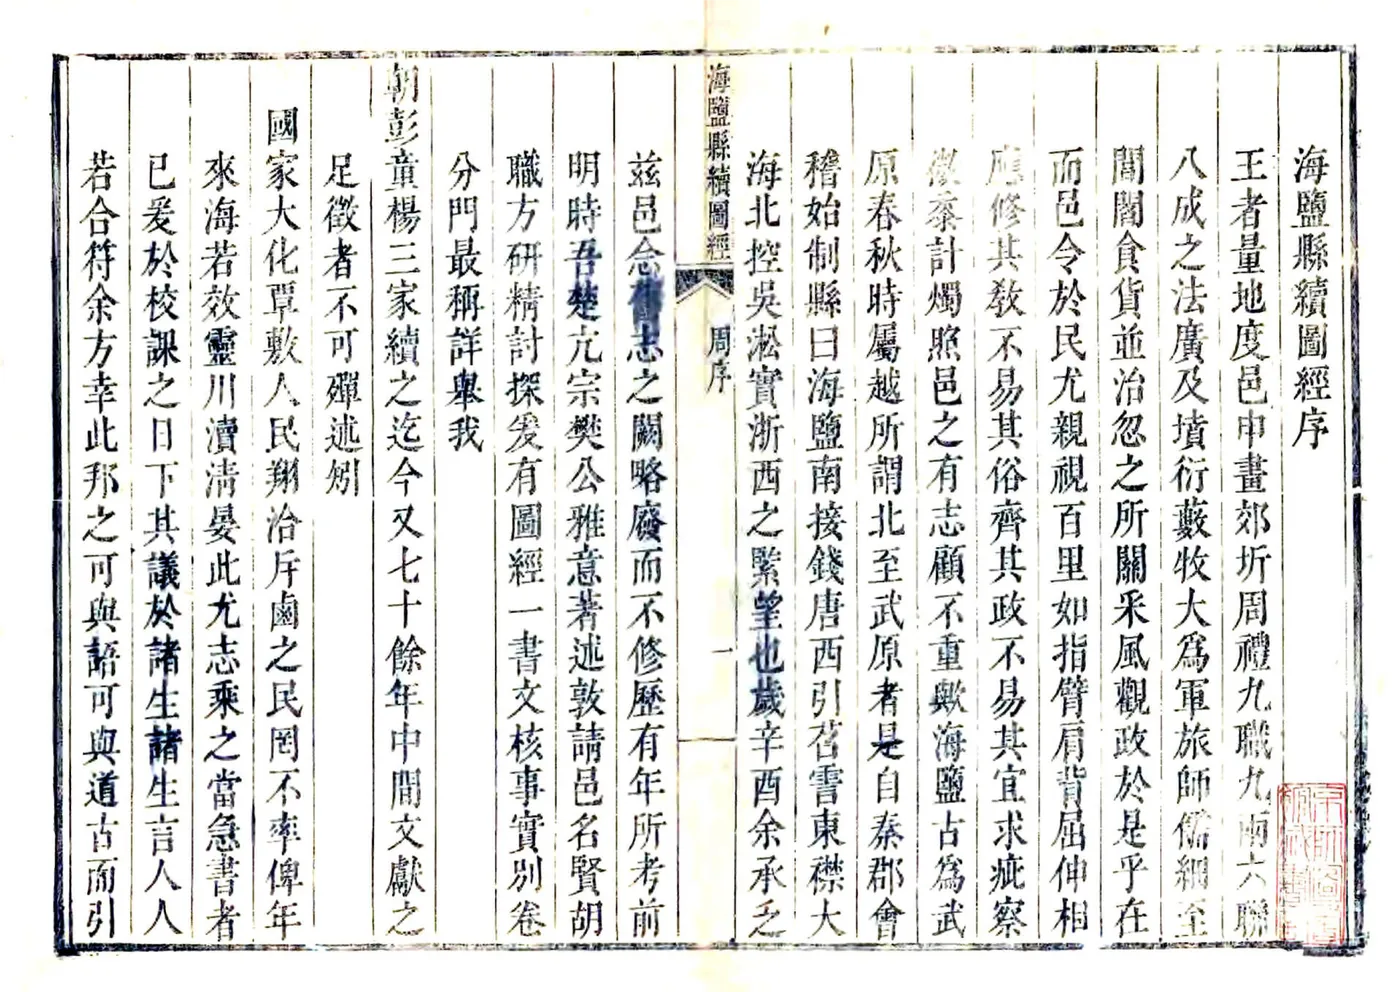 海鹽縣續圖經序
王者量地度邑申畫郊圻周禮九職九兩六聯
八成之法廣及墳衍藪牧大為軍旅師儒細至
閭閻食貨並治忽之所關采風觀政於是乎在
而邑令於民尤親視百里如指臂肩背屈伸相
應修其敎不易其俗齊其政不易其宜求疵察
計燭照邑之有志顧不重歟海鹽古為武
原春秋時屬越所謂北至武原者是自秦郡會
稽始制縣曰海鹽南接錢唐西引苕霅東襟大
海北控吳淞實浙西之緊望也歲辛酉余承乏
海鹽縣續圖經
周序
一
茲邑念舊志之闕略廢而不修歷有年所考前
明時吾楚亢宗樊公雅意著述敦請邑名賢胡
職方硏精討探爰有圖經一書文核事實別卷
分門最稱詳舉我
朝彭童楊三家續之迄今又七十餘年中間文獻之
足徵者不可殫述矧
國家大化覃敷人民翔洽斥鹵之民罔不率俾年
來海若效靈川瀆清晏此尤志乘之當急書者
已爰於校課之日下其議於諸生諸生言人人
若合符余方幸此邦之可與語可與道古而引